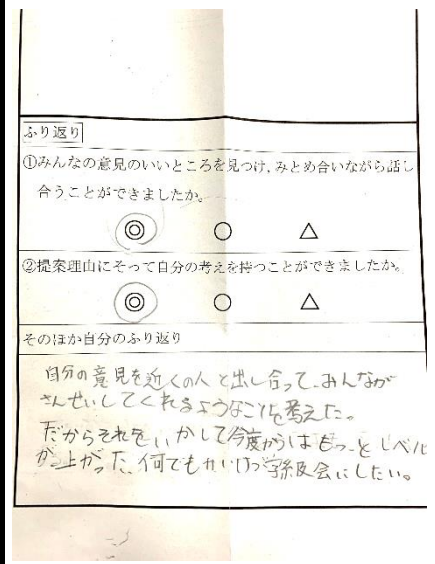 ふり返り
①みんなの意見のいいところを見つけ,みとめ合いながら話し
合うことができましたか。
◎ ○ △
②提案理由にそって自分の考えを持つことができましたか。
◎ ○ △
そのほか自分のふり返り
自分の意見を近くの人と出し合って、みんなが
さんせいしてくれるようなことを考えた。
だからそれをいかして今度からはもっとレベル
が上がった、何でもかいけつ学級会にしたい。